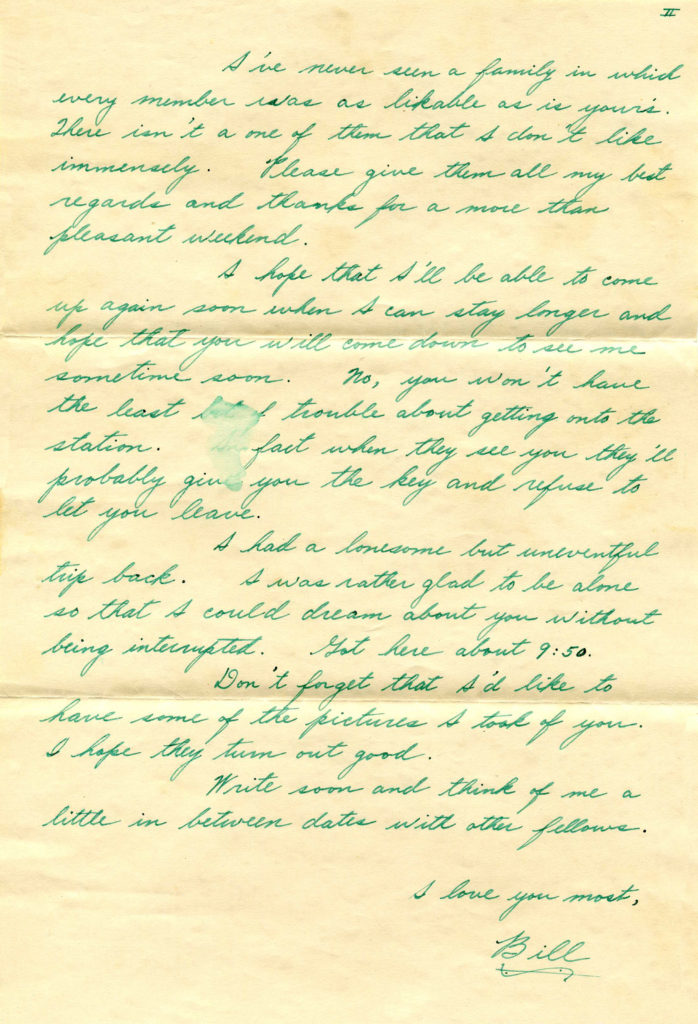 II
I've never seen a family in which
every member was as likable as is your's.
There isn't a one of them that I don't like
immensely. Please give them all my best
regards and thanks for a more than
pleasant weekend.
I hope that I'll be able to come
up again soon when I can stay longer and
hope that you will come down to see me
sometime soon. No, you won't have
the least bit of trouble about getting onto the
station. In fact when they see you they'll
probably give you the key and refuse to
let you leave.
I had a lonesome but uneventful
trip back. I was rather glad to be alone
so that I could dream about you without
being interrupted. Got here about 9:50.
Don't forget that I'd like to
have some of the pictures I took of you.
I hope they turn out good.
Write soon and think of me a
little in between dates with other fellows.
I love you most,
Bill